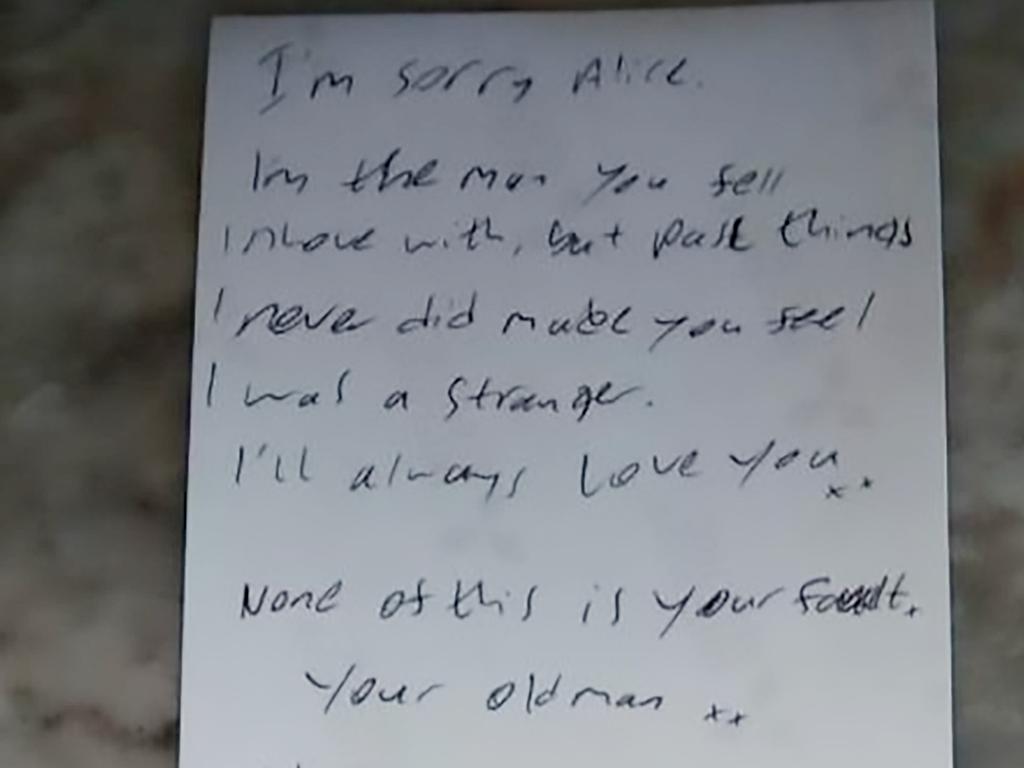 I'm sorry Alice.
I'm the man you fell
in love with, but past things
I never did made you feel
I was a stranger.
I'll always love you xx
None of this is your fault.
Your oldman xx